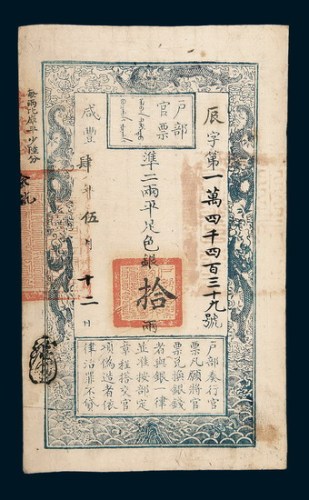 戶部
官票
辰字第一萬四千四百三十九號
準二兩平足色銀拾兩
咸豐肆年伍月十二日
每兩比庫平少陸分
戶部奏行官
票凡願將官
票兌換銀錢
者與銀一律
並準按部定
章程搭交官
項偽造者依
律治罪不貸